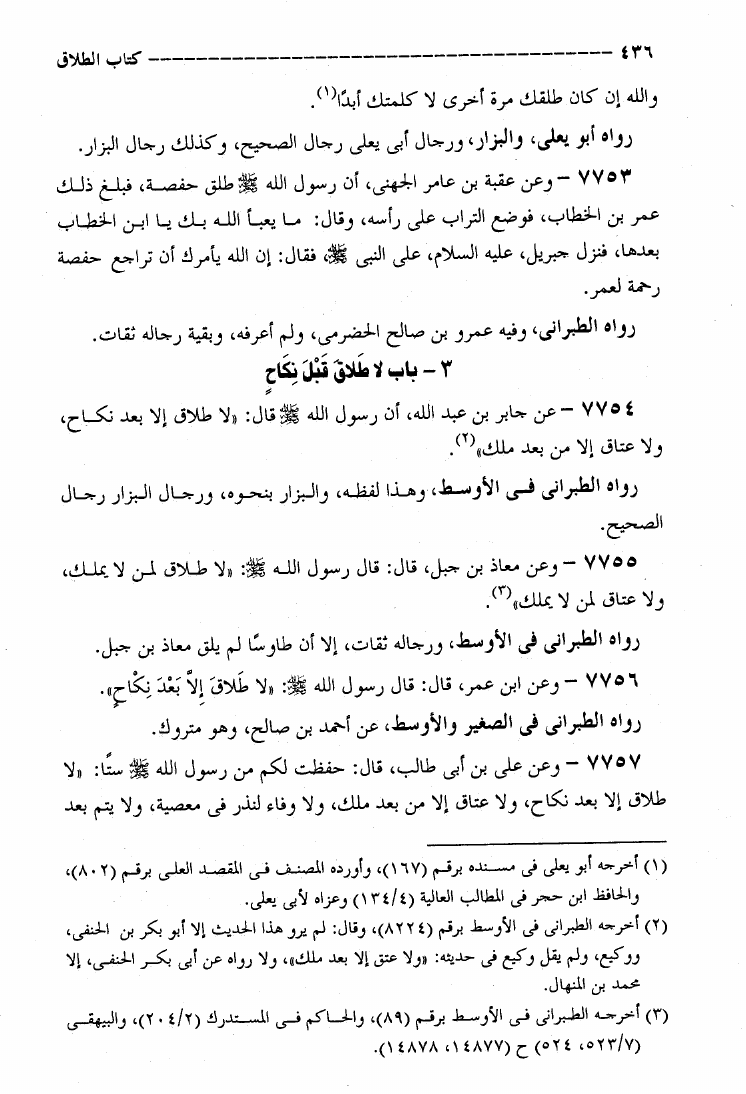 ٤٣٦ ــــــــــــــــــــــــــــــــــــــــــــــــــــــــ كتاب الطلاق
والله إن كان طلقك مرة أخرى لا كلمتك أبدًا(١).
رواه أبو يعلى، والبزار، ورجال أبى يعلى رجال الصحيح، وكذلك رجال البزار.
٧٧٥٣ – وعن عقبة بن عامر الجهنى، أن رسول الله ﷺ طلق حفصة، فبلغ ذلك
عمر بن الخطاب، فوضع التراب على رأسه، وقال: ما يعبأ الله بك يا ابن الخطاب
بعدها، فنزل جبريل، عليه السلام، على النبى ﷺ، فقال: إن الله يأمرك أن تراجع حفصة
رحمة لعمر.
رواه الطبرانى، وفيه عمرو بن صالح الحضرمى، ولم أعرفه، وبقية رجاله ثقات.
٣ – باب لا طَلَاقَ قَبْلَ نِكَاحٍ
٧٧٥٤ – عن جابر بن عبد الله، أن رسول الله ﷺ قال: «لا طلاق إلا بعد نكاح،
ولا عتاق إلا من بعد ملك»(٢).
رواه الطبرانى فى الأوسط، وهذا لفظه، والبزار بنحوه، ورجال البزار رجال
الصحيح.
٧٧٥٥ – وعن معاذ بن جبل، قال: قال رسول الله ﷺ: «لا طلاق لمن لا يملك،
ولا عتاق لمن لا يملك»(٣).
رواه الطبرانى فى الأوسط، ورجاله ثقات، إلا أن طاوسًا لم يلق معاذ بن جبل.
٧٧٥٦ – وعن ابن عمر، قال: قال رسول الله ﷺ: «لا طَلَاقَ إِلاَّ بَعْدَ نِكَاحٍ».
رواه الطبرانى فى الصغير والأوسط، عن أحمد بن صالح، وهو متروك.
٧٧٥٧ – وعن على بن أبى طالب، قال: حفظت لكم من رسول الله ﷺ ستًّا: «لا
طلاق إلا بعد نكاح، ولا عتاق إلا من بعد ملك، ولا وفاء لنذر فى معصية، ولا يتم بعد
(١) أخرجه أبو يعلى فى مسنده برقم (١٦٧)، وأورده المصنف فى المقصد العلى برقم (٨٠٢)،
والحافظ ابن حجر فى المطالب العالية (١٣٤/٤) وعزاه لأبى يعلى.
(٢) أخرجه الطبرانى فى الأوسط برقم (٨٢٢٤)، وقال: لم يرو هذا الحديث إلا أبو بكر بن الحنفى،
ووكيع، ولم يقل وكيع فى حديثه: «ولا عتق إلا بعد ملك»، ولا رواه عن أبى بكر الحنفى، إلا
محمد بن المنهال.
(٣) أخرجه الطبرانى فى الأوسط برقم (٨٩)، والحاكم فى المستدرك (٢٠٤/٢)، والبيهقى
(٥٢٣/٧، ٥٢٤) ح (١٤٨٧٧، ١٤٨٧٨).